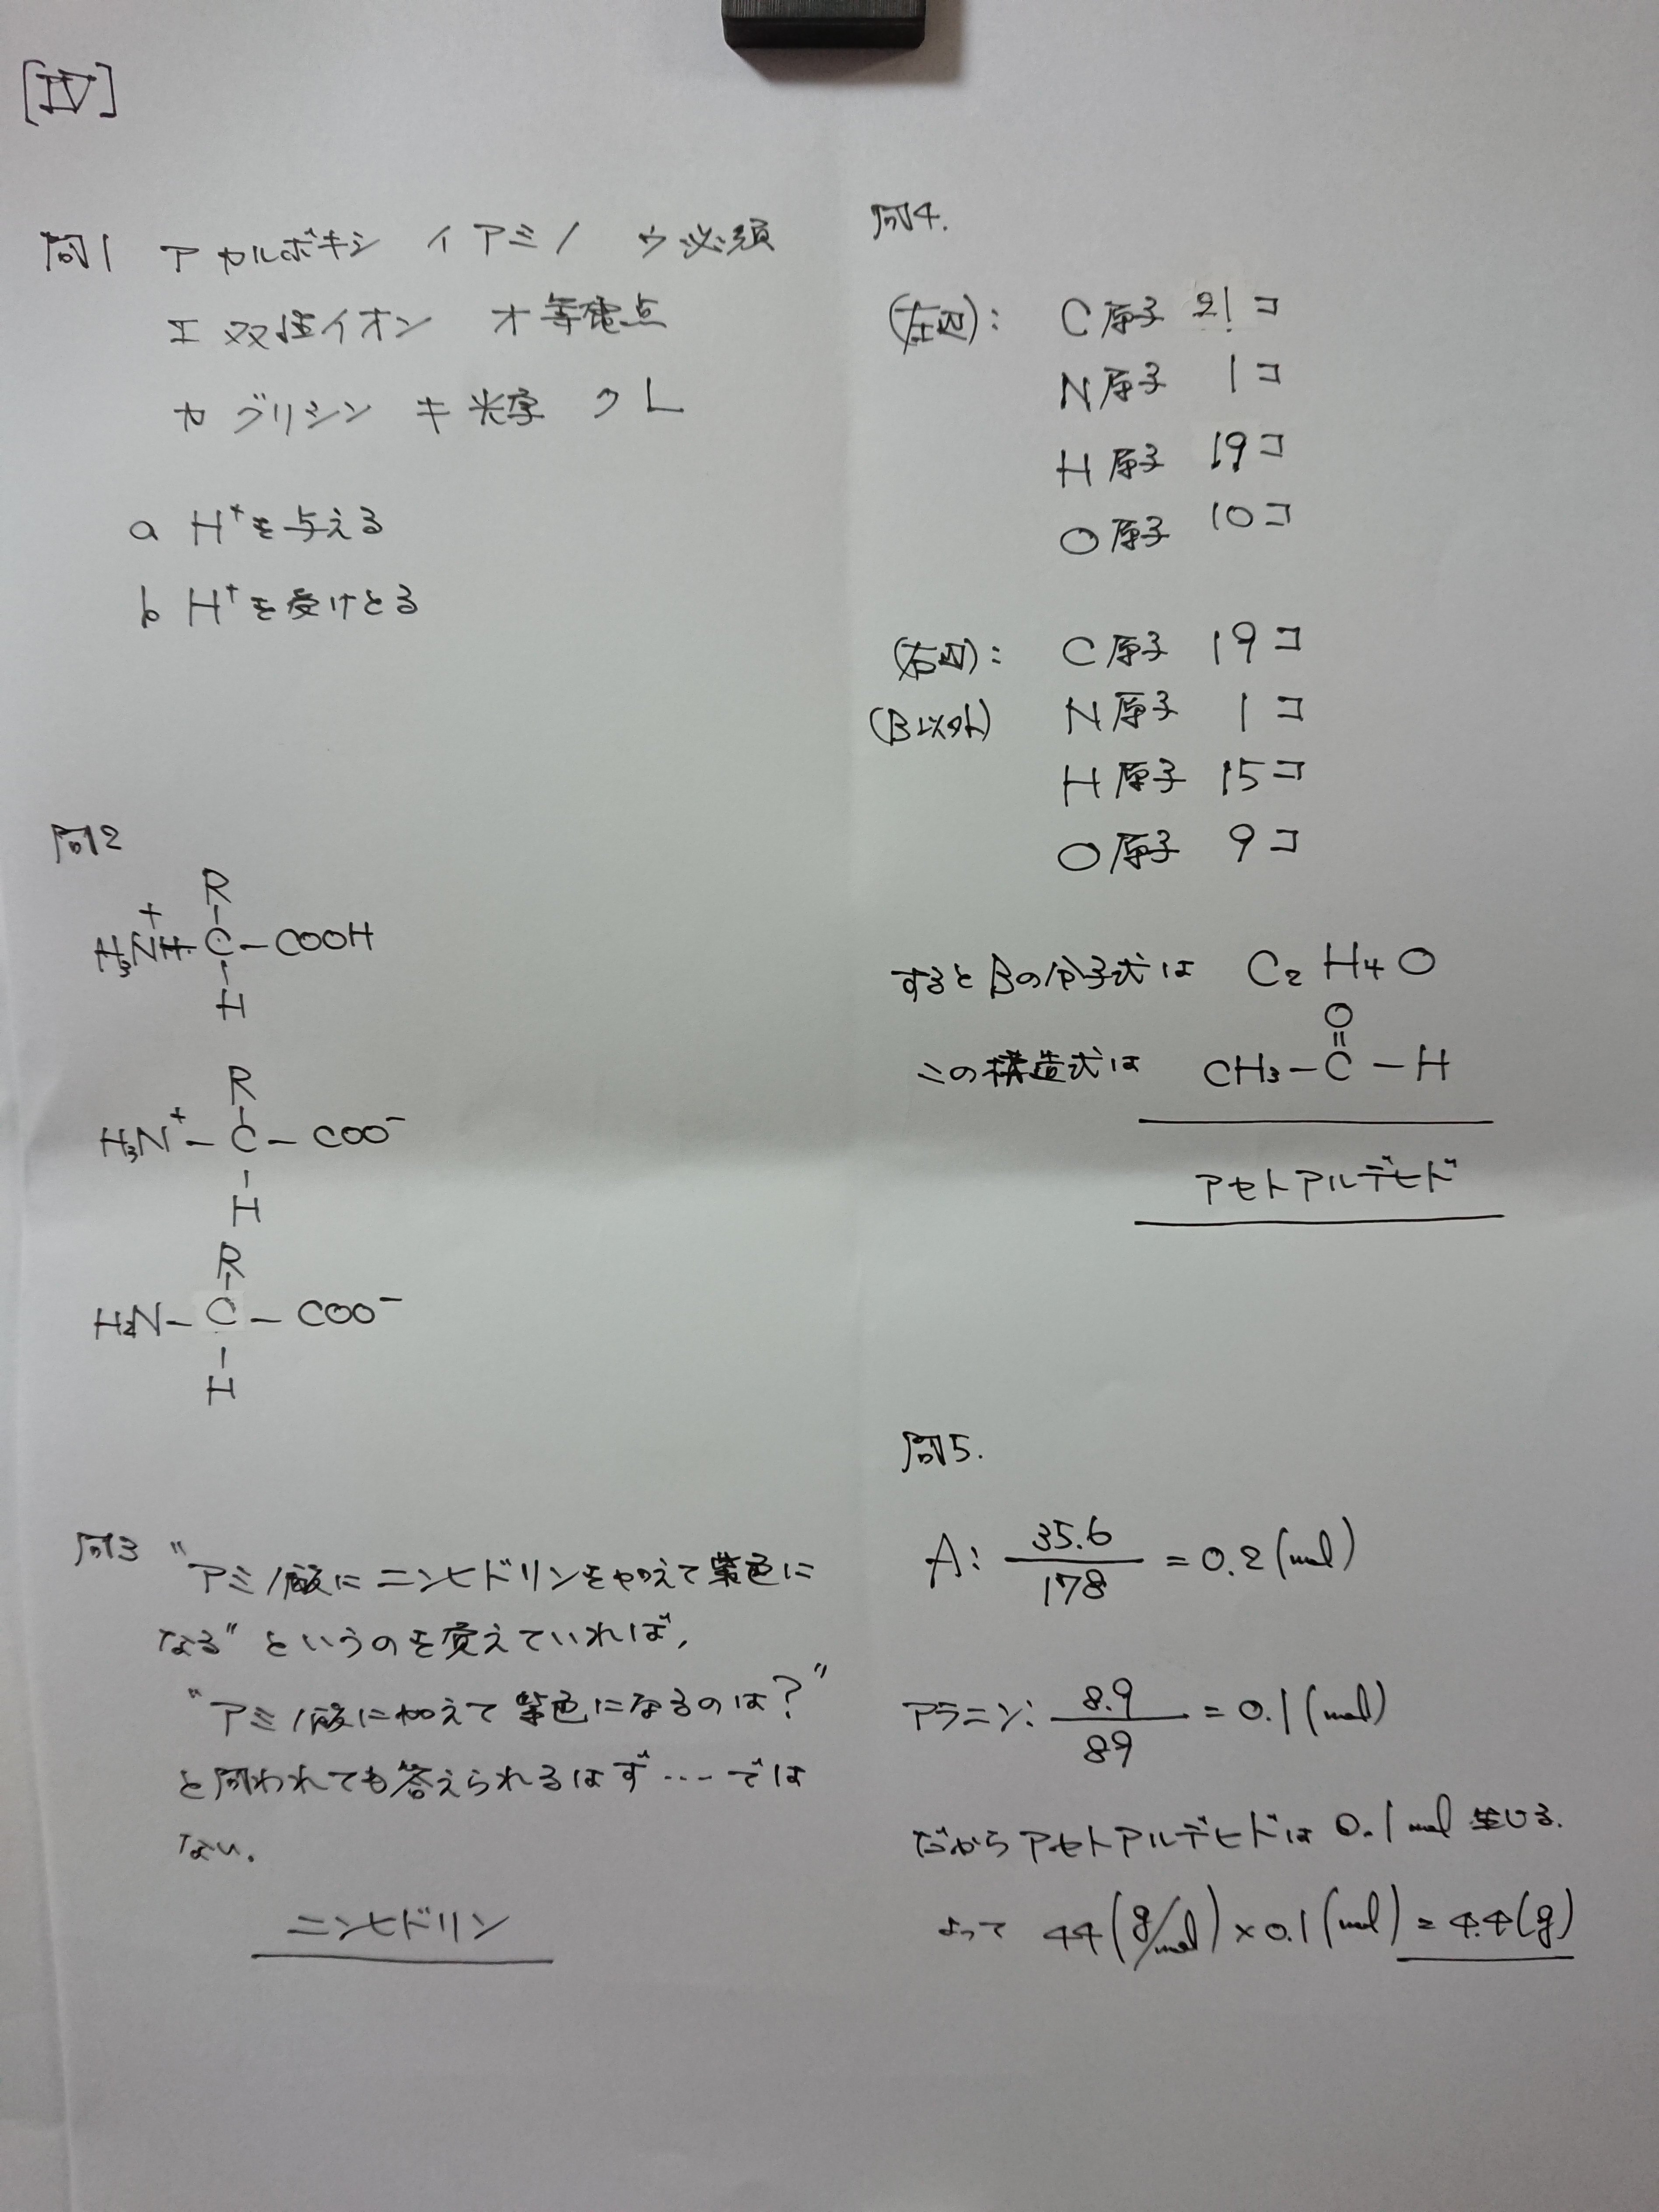 [IV]
問1 ア カルボキシ イ アミノ ウ 必須
エ 双性イオン オ 等電点
カ グリシン キ 光学 ク L
a H⁺を与える
b H⁺を受けとる
問2
R
H₃N⁺–C–COOH
H
R
H₃N⁺–C–COO⁻
H
R
H₂N–C–COO⁻
H
問3 "アミノ酸にニンヒドリンを加えて紫色に
なる"というのを覚えていれば,
"アミノ酸に加えて紫色になるのは?"
と問われても答えられるはず…では
ない.
ニンヒドリン
問4.
(左辺): C原子 21コ
N原子 1コ
H原子 19コ
O原子 10コ
(右辺): C原子 19コ
(B以外) N原子 1コ
H原子 15コ
O原子 9コ
するとBの分子式は C₂H₄O
O
この構造式は CH₃–C–H
アセトアルデヒド
問5.
A: 35.6/178 = 0.2 (mol)
アラニン: 8.9/89 = 0.1 (mol)
だからアセトアルデヒドは 0.1 mol 生じる.
よって 44 (g/mol) × 0.1 (mol) = 4.4 (g)